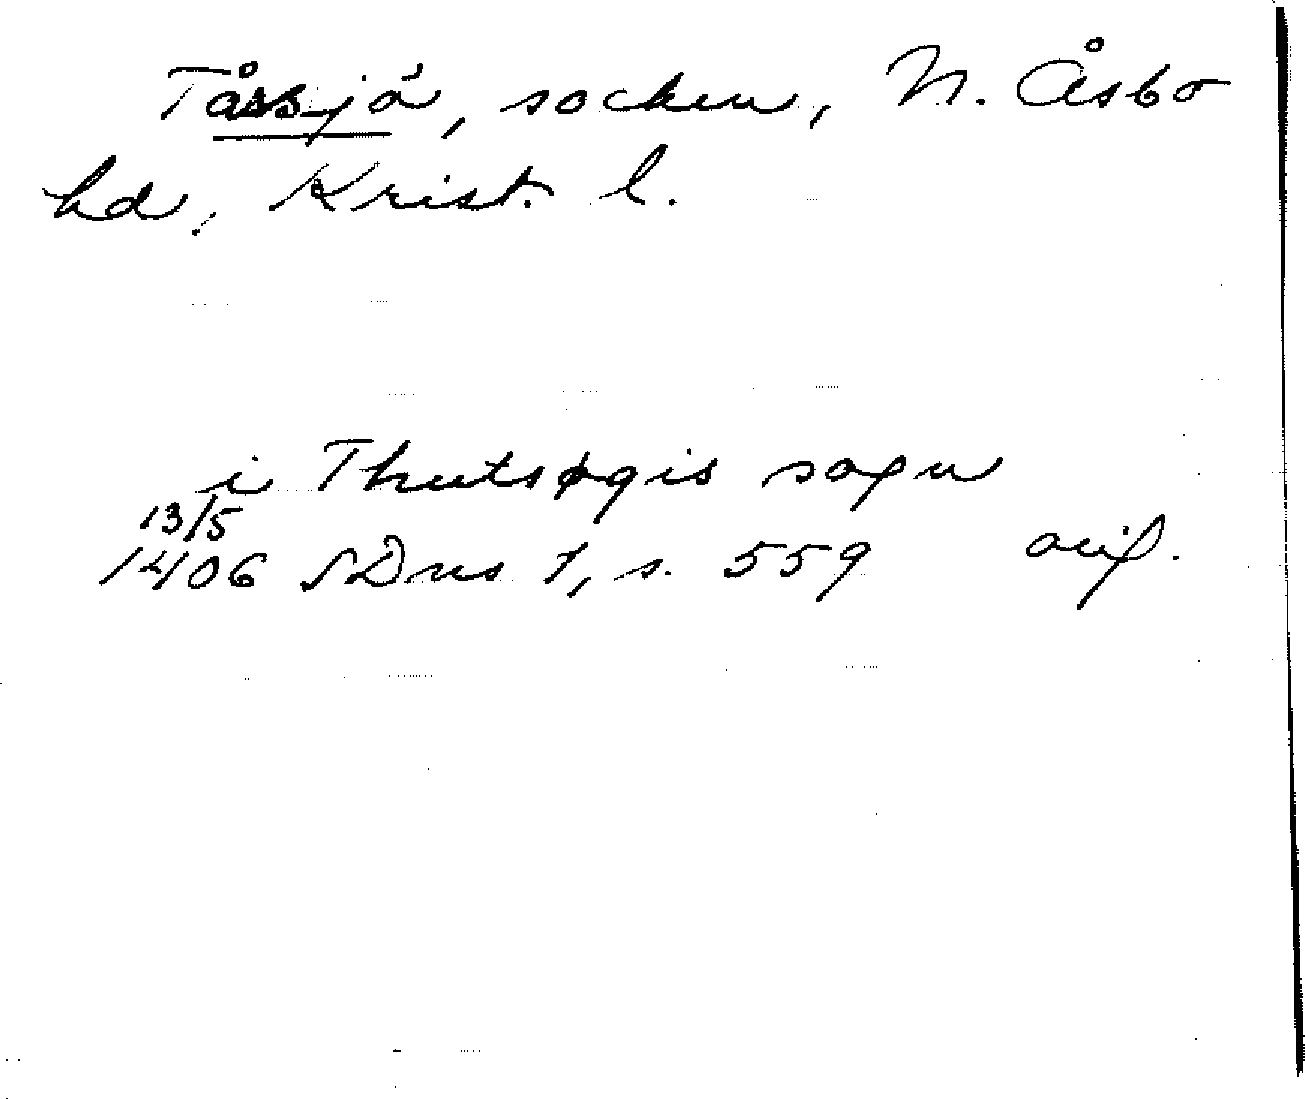 Tåssjö, socken, N. Åsbo
hd, Krist. l.
i Thutsøgis sogn
13/5
1406 SDns 1, s. 559 avi.